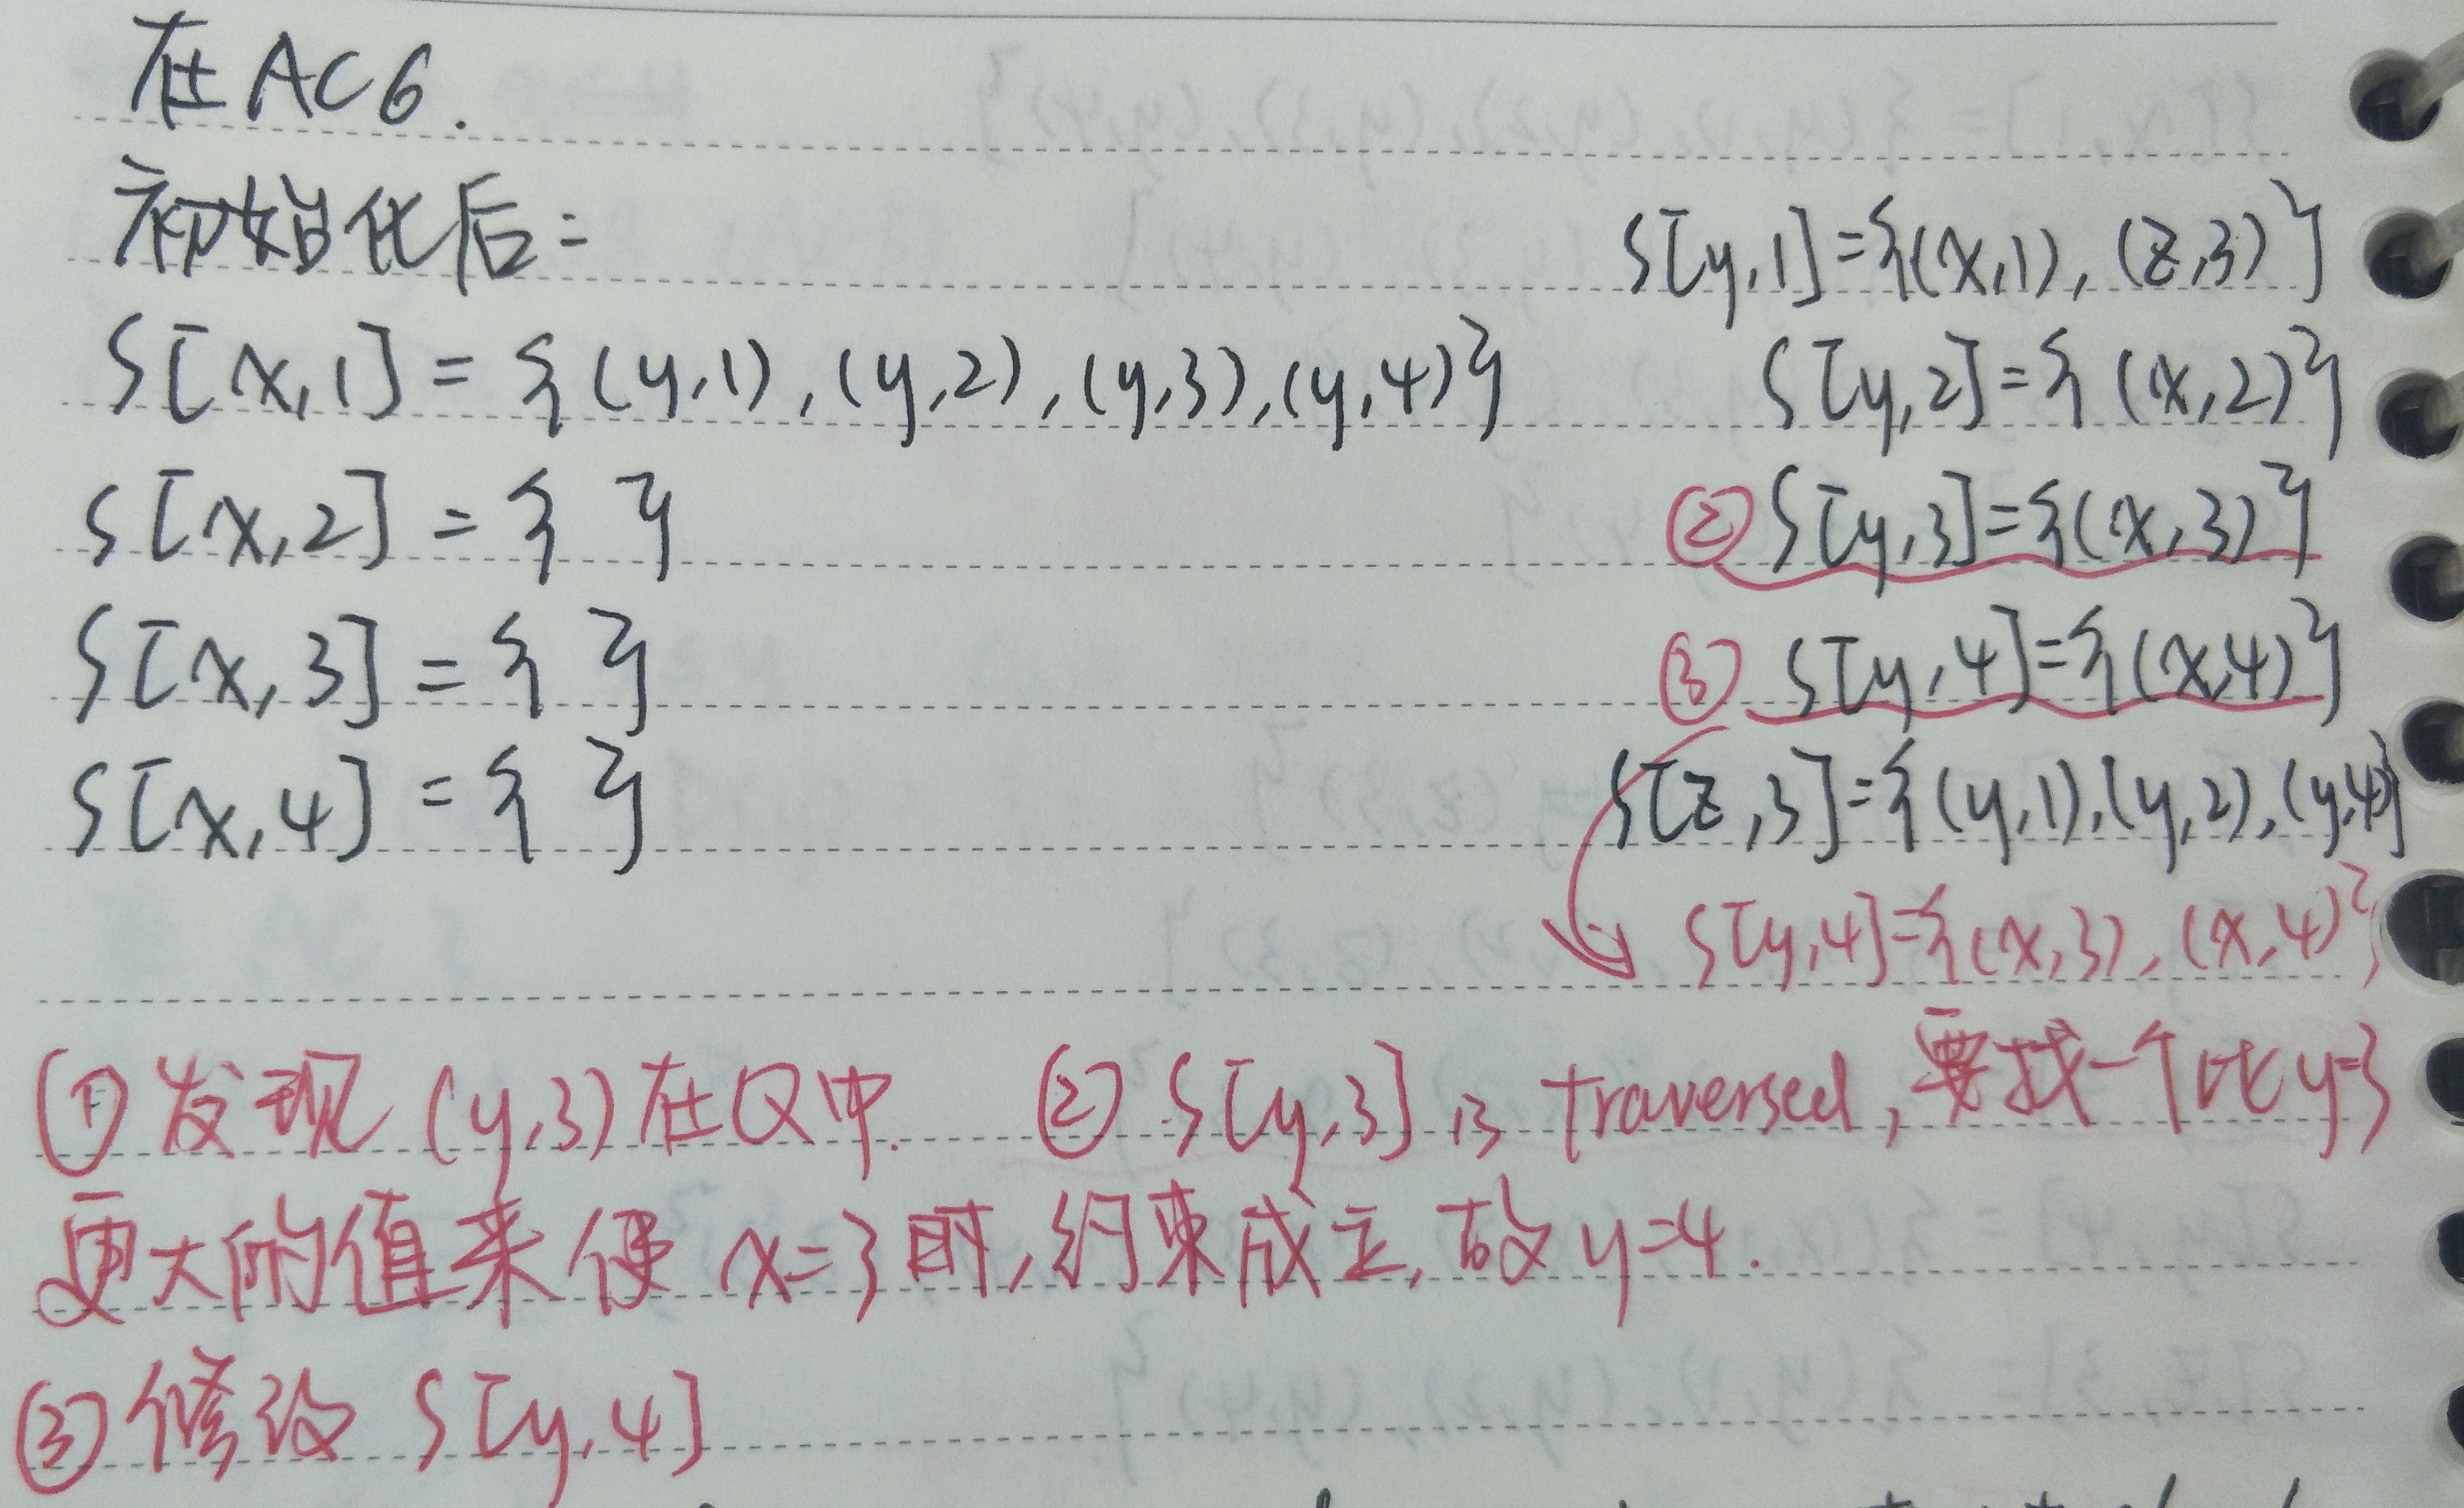 在AC6.
初始化后:
S[x,1] = {(y,1),(y,2),(y,3),(y,4)}
S[x,2] = { }
S[x,3] = { }
S[x,4] = { }
S[y,1]={(x,1),(z,3)}
S[y,2]={(x,2)}
② S[y,3]={(x,3)}
③ S[y,4]={(x,4)}
S[z,3]={(y,1),(y,2),(y,4)}
S[y,4]={(x,3),(x,4)}
①发现(y,3)在Q中. ② S[y,3] is traversed,要找一个比y=3
更大的值来使 x=3时,约束成立,故y=4.
③修改 S[y,4]